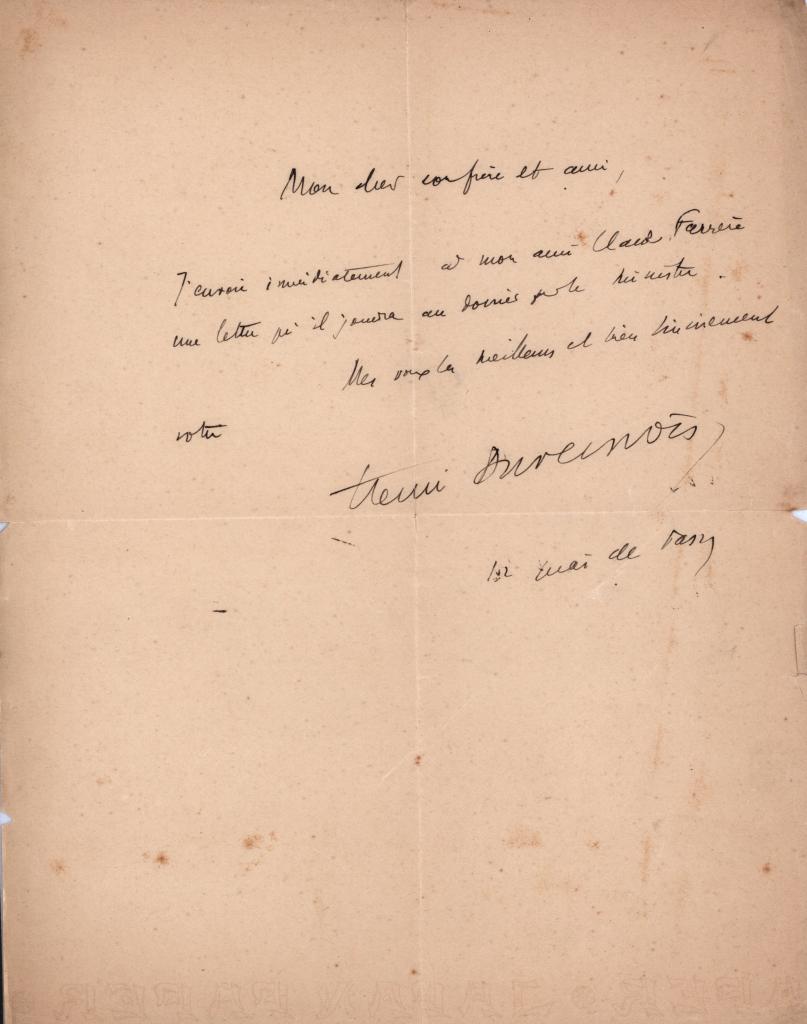 Mon cher confrère et ami,
J'envoie immédiatement à mon ami Claude Farrère
une lettre qu'il joindra au dossier pour le ministre.
Mes voeux les meilleurs et bien sincèrement
votre
Henri Duvernois
quai de Passy
JAPAN PAPER